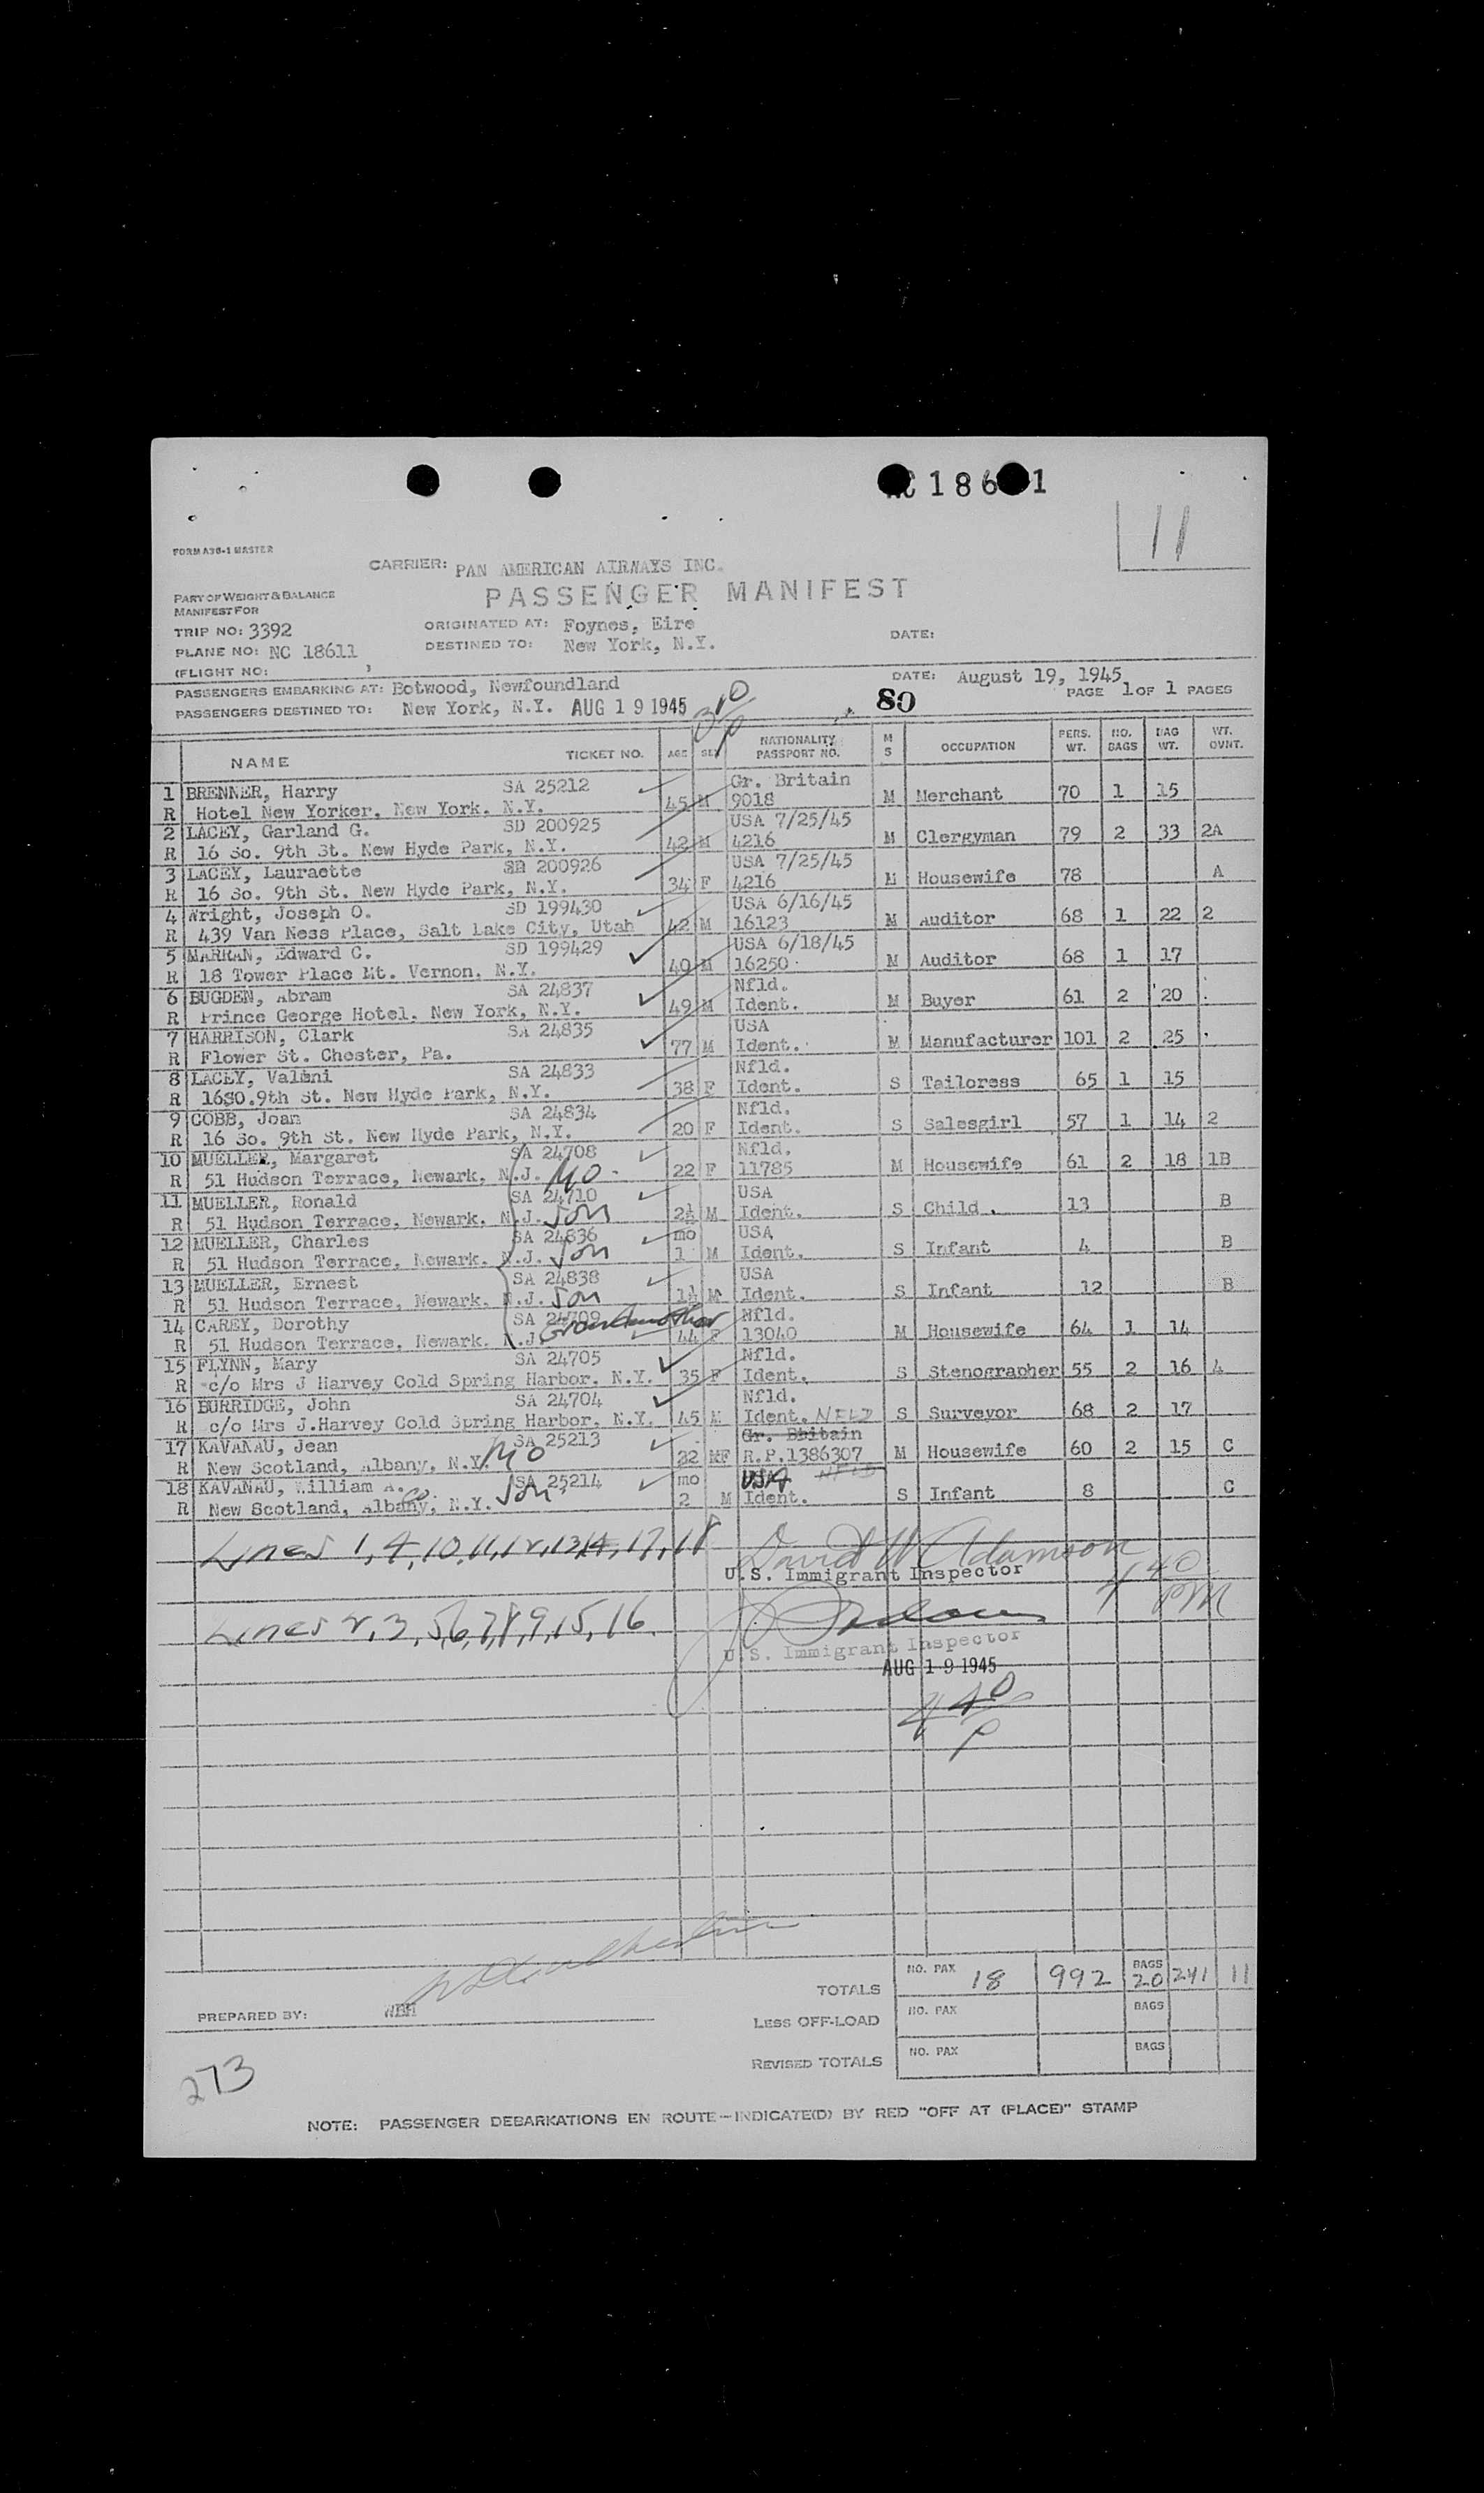 186 1
11
FORM A36-1 MASTER
CARRIER: PAN AMERICAN AIRWAYS INC.
PASSENGER MANIFEST
PART OF WEIGHT & BALANCE
MANIFEST FOR
TRIP NO: 3392
ORIGINATED AT: Foynes, Eire
DATE:
PLANE NO: NC 18611
DESTINED TO: New York, N.Y.
(FLIGHT NO: )
PASSENGERS EMBARKING AT: Botwood, Newfoundland
DATE: August 19, 1945
PASSENGERS DESTINED TO: New York, N.Y. AUG 19 1945
80
PAGE 1 OF 1 PAGES
NAME TICKET NO. AGE SEX NATIONALITY PASSPORT NO. M S OCCUPATION PERS. WT. NO. BAGS BAG WT. WT. OVNT.
1 BRENNER, Harry SA 25212 Gr. Britain
R Hotel New Yorker, New York, N.Y. 45 M 9018 M Merchant 70 1 15
2 LACEY, Garland G. SD 200925 USA 7/25/45
R 16 So. 9th St. New Hyde Park, N.Y. 42 M 4216 M Clergyman 79 2 33 2A
3 LACEY, Lauraette SD 200926 USA 7/25/45
R 16 So. 9th St. New Hyde Park, N.Y. 34 F 4216 M Housewife 78 A
4 Wright, Joseph O. SD 199430 USA 6/16/45
R 439 Van Ness Place, Salt Lake City, Utah 42 M 16123 M Auditor 68 1 22 2
5 MARRAN, Edward C. SD 199429 USA 6/18/45
R 18 Tower Place Mt. Vernon, N.Y. 40 M 16250 M Auditor 68 1 17
6 BUGDEN, Abram SA 24837 Nfld.
R Prince George Hotel, New York, N.Y. 49 M Ident. M Buyer 61 2 20
7 HARRISON, Clark SA 24835 USA
R Flower St. Chester, Pa. 77 M Ident. M Manufacturer 101 2 25
8 LACEY, Valeni SA 24833 Nfld.
R 16SO.9th St. New Hyde Park, N.Y. 38 F Ident. S Tailoress 65 1 15
9 COBB, Joan SA 24834 Nfld.
R 16 So. 9th St. New Hyde Park, N.Y. 20 F Ident. S Salesgirl 57 1 14 2
10 MUELLER, Margaret SA 24708 Nfld.
R 51 Hudson Terrace, Newark, N.J. Mo. 22 F 11785 M Housewife 61 2 18 1B
11 MUELLER, Ronald SA 24710 USA
R 51 Hudson Terrace, Newark, N.J. Son 2½ M Ident. S Child. 13 B
12 MUELLER, Charles SA 24836 mo USA
R 51 Hudson Terrace, Newark, N.J. Son 1 M Ident. S Infant 4 B
13 MUELLER, Ernest SA 24838 USA
R 51 Hudson Terrace, Newark, N.J. Son 1½ M Ident. S Infant 12 B
14 CAREY, Dorothy SA 24709 Nfld.
R 51 Hudson Terrace, Newark, N.J. Grandmother 44 F 13040 M Housewife 64 1 14
15 FLYNN, Mary SA 24705 Nfld.
R c/o Mrs J Harvey Cold Spring Harbor, N.Y. 35 F Ident. S Stenographer 55 2 16 4
16 BURRIDGE, John SA 24704 Nfld.
R c/o Mrs J.Harvey Cold Spring Harbor, N.Y. 45 M Ident. NFLD S Surveyor 68 2 17
17 KAVANAU, Jean SA 25213 Gr. Bbitain
R New Scotland, Albany, N.Y. Mo 22 MF R.P.1386307 M Housewife 60 2 15 C
18 KAVANAU, William A. SA 25214 mo USA NFLD
R New Scotland, Albany, N.Y. Son 2 M Ident. S Infant 8 C
Lines 1, 4, 10, 11, 12, 13, 14, 17, 18
David W Adamson
U.S. Immigrant Inspector
4 40 PM
Lines 2, 3, 5, 6, 7, 8, 9, 15, 16.
U.S. Immigrant Inspector
AUG 19 1945
4 40 P
TOTALS NO. PAX 18 992 BAGS 20 241 11
PREPARED BY: WBH
LESS OFF-LOAD NO. PAX BAGS
REVISED TOTALS NO. PAX BAGS
273
NOTE: PASSENGER DEBARKATIONS EN ROUTE—INDICATE(D) BY RED "OFF AT (PLACE)" STAMP